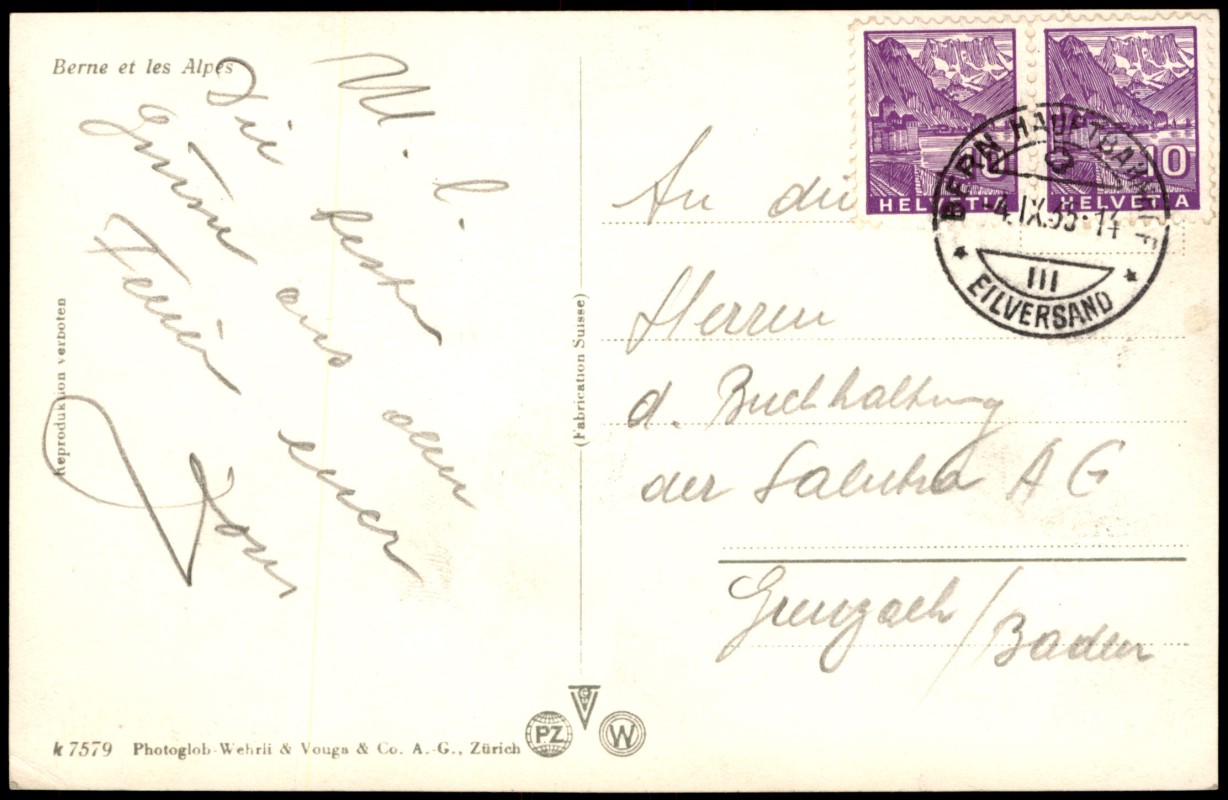 Berne et les Alpes
M. l.
Die besten
Grüsse aus den
Ferien euer
An die
Herren
d. Buchhaltung
der Salubra A G
Grenzach/Baden
HELVETIA 10
HELVETIA 10
BERN HAUPTBAHNHOF
-4.IX.35-14
III
EILVERSAND
Reproduktion verboten
(Fabrication Suisse)
k 7579 Photoglob-Wehrli & Vouga & Co. A.-G., Zürich
PZ
W